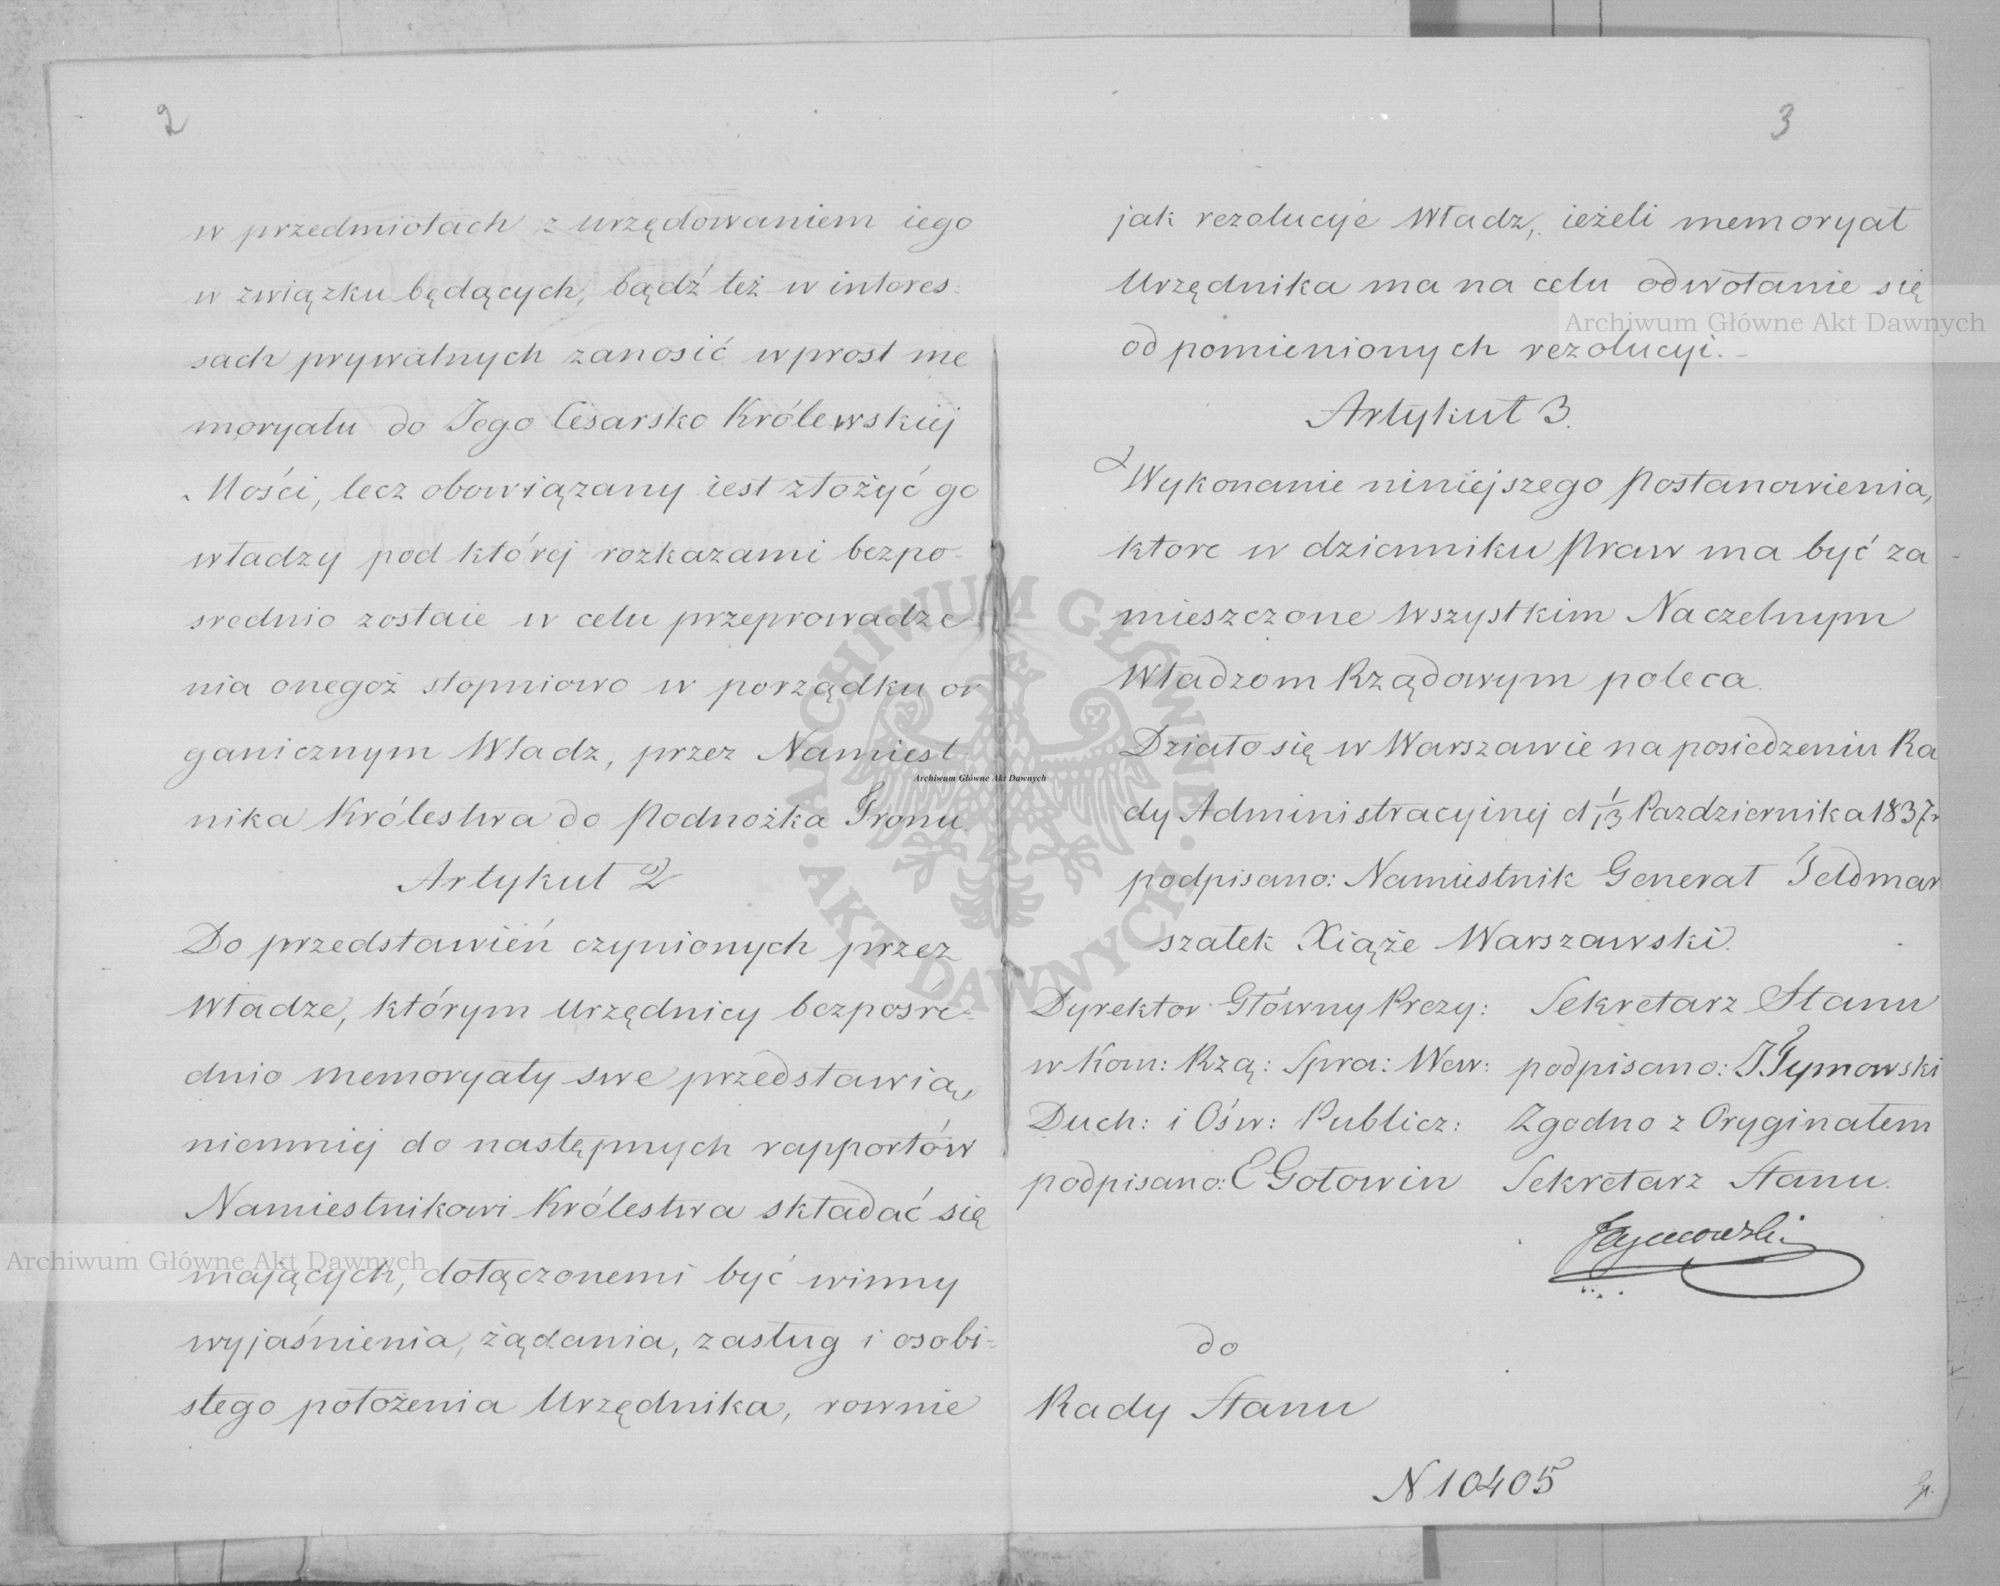 2
w przedmiotach z urzędowaniem iego
w związku będących, bądź też w interes-
sach prywatnych zanosić wprost me
moryału do Jego Cesarsko Królewskiej
Mości, lecz obowiązany iest złożyć go
władzy pod której rozkazami bezpo-
srednio zostaie w celu przeprowadze
nia onegoż stopniowo w porządku or
ganicznym Władz, przez Namiest-
nika Królestwa do Podnożka Tronu
Artykuł 2
Do przedstawień czynionych przez
Władze, którym Urzędnicy bezpośre-
dnio memoryały swe przedstawią,
niemniej do następnych rapportów
Namiestnikowi Królestwa składać się
mających, dołączonemi być winny
wyjaśnienia, żądania, zasług i osobi-
stego położenia Urzędnika, rownie
3
jak rezolucye Władz, ieżeli memoryał
Urzędnika ma na celu odwołanie się
od pomienionych rezolucyi.-
Artykuł 3.
Wykonanie niniejszego Postanowienia,
ktore w dzienniku Praw ma być za
mieszczone wszystkim Naczelnym
Władzom Rządowym poleca.
Działo się w Warszawie na posiedzeniu Ra
dy Administracyjnej d 1/13 Pazdziernika 1837r
podpisano: Namiestnik Generał Feldmar
szałek Xiąże Warszawski.
Dyrektor Główny Prezy:
w Kom: Rzą: Spra: Wew:
Duch: i Ośw: Publicz:
podpisano: E Gołowin
Sekretarz Stanu
podpisano: J Tymowski
Zgodno z Oryginałem
Sekretarz Stanu.
Tymowski
do
Rady Stanu
N 10405
Archiwum Główne Akt Dawnych
Archiwum Główne Akt Dawnych
Archiwum Główne Akt Dawnych
ARCHIWUM GŁÓWNE · AKT DAWNYCH ·